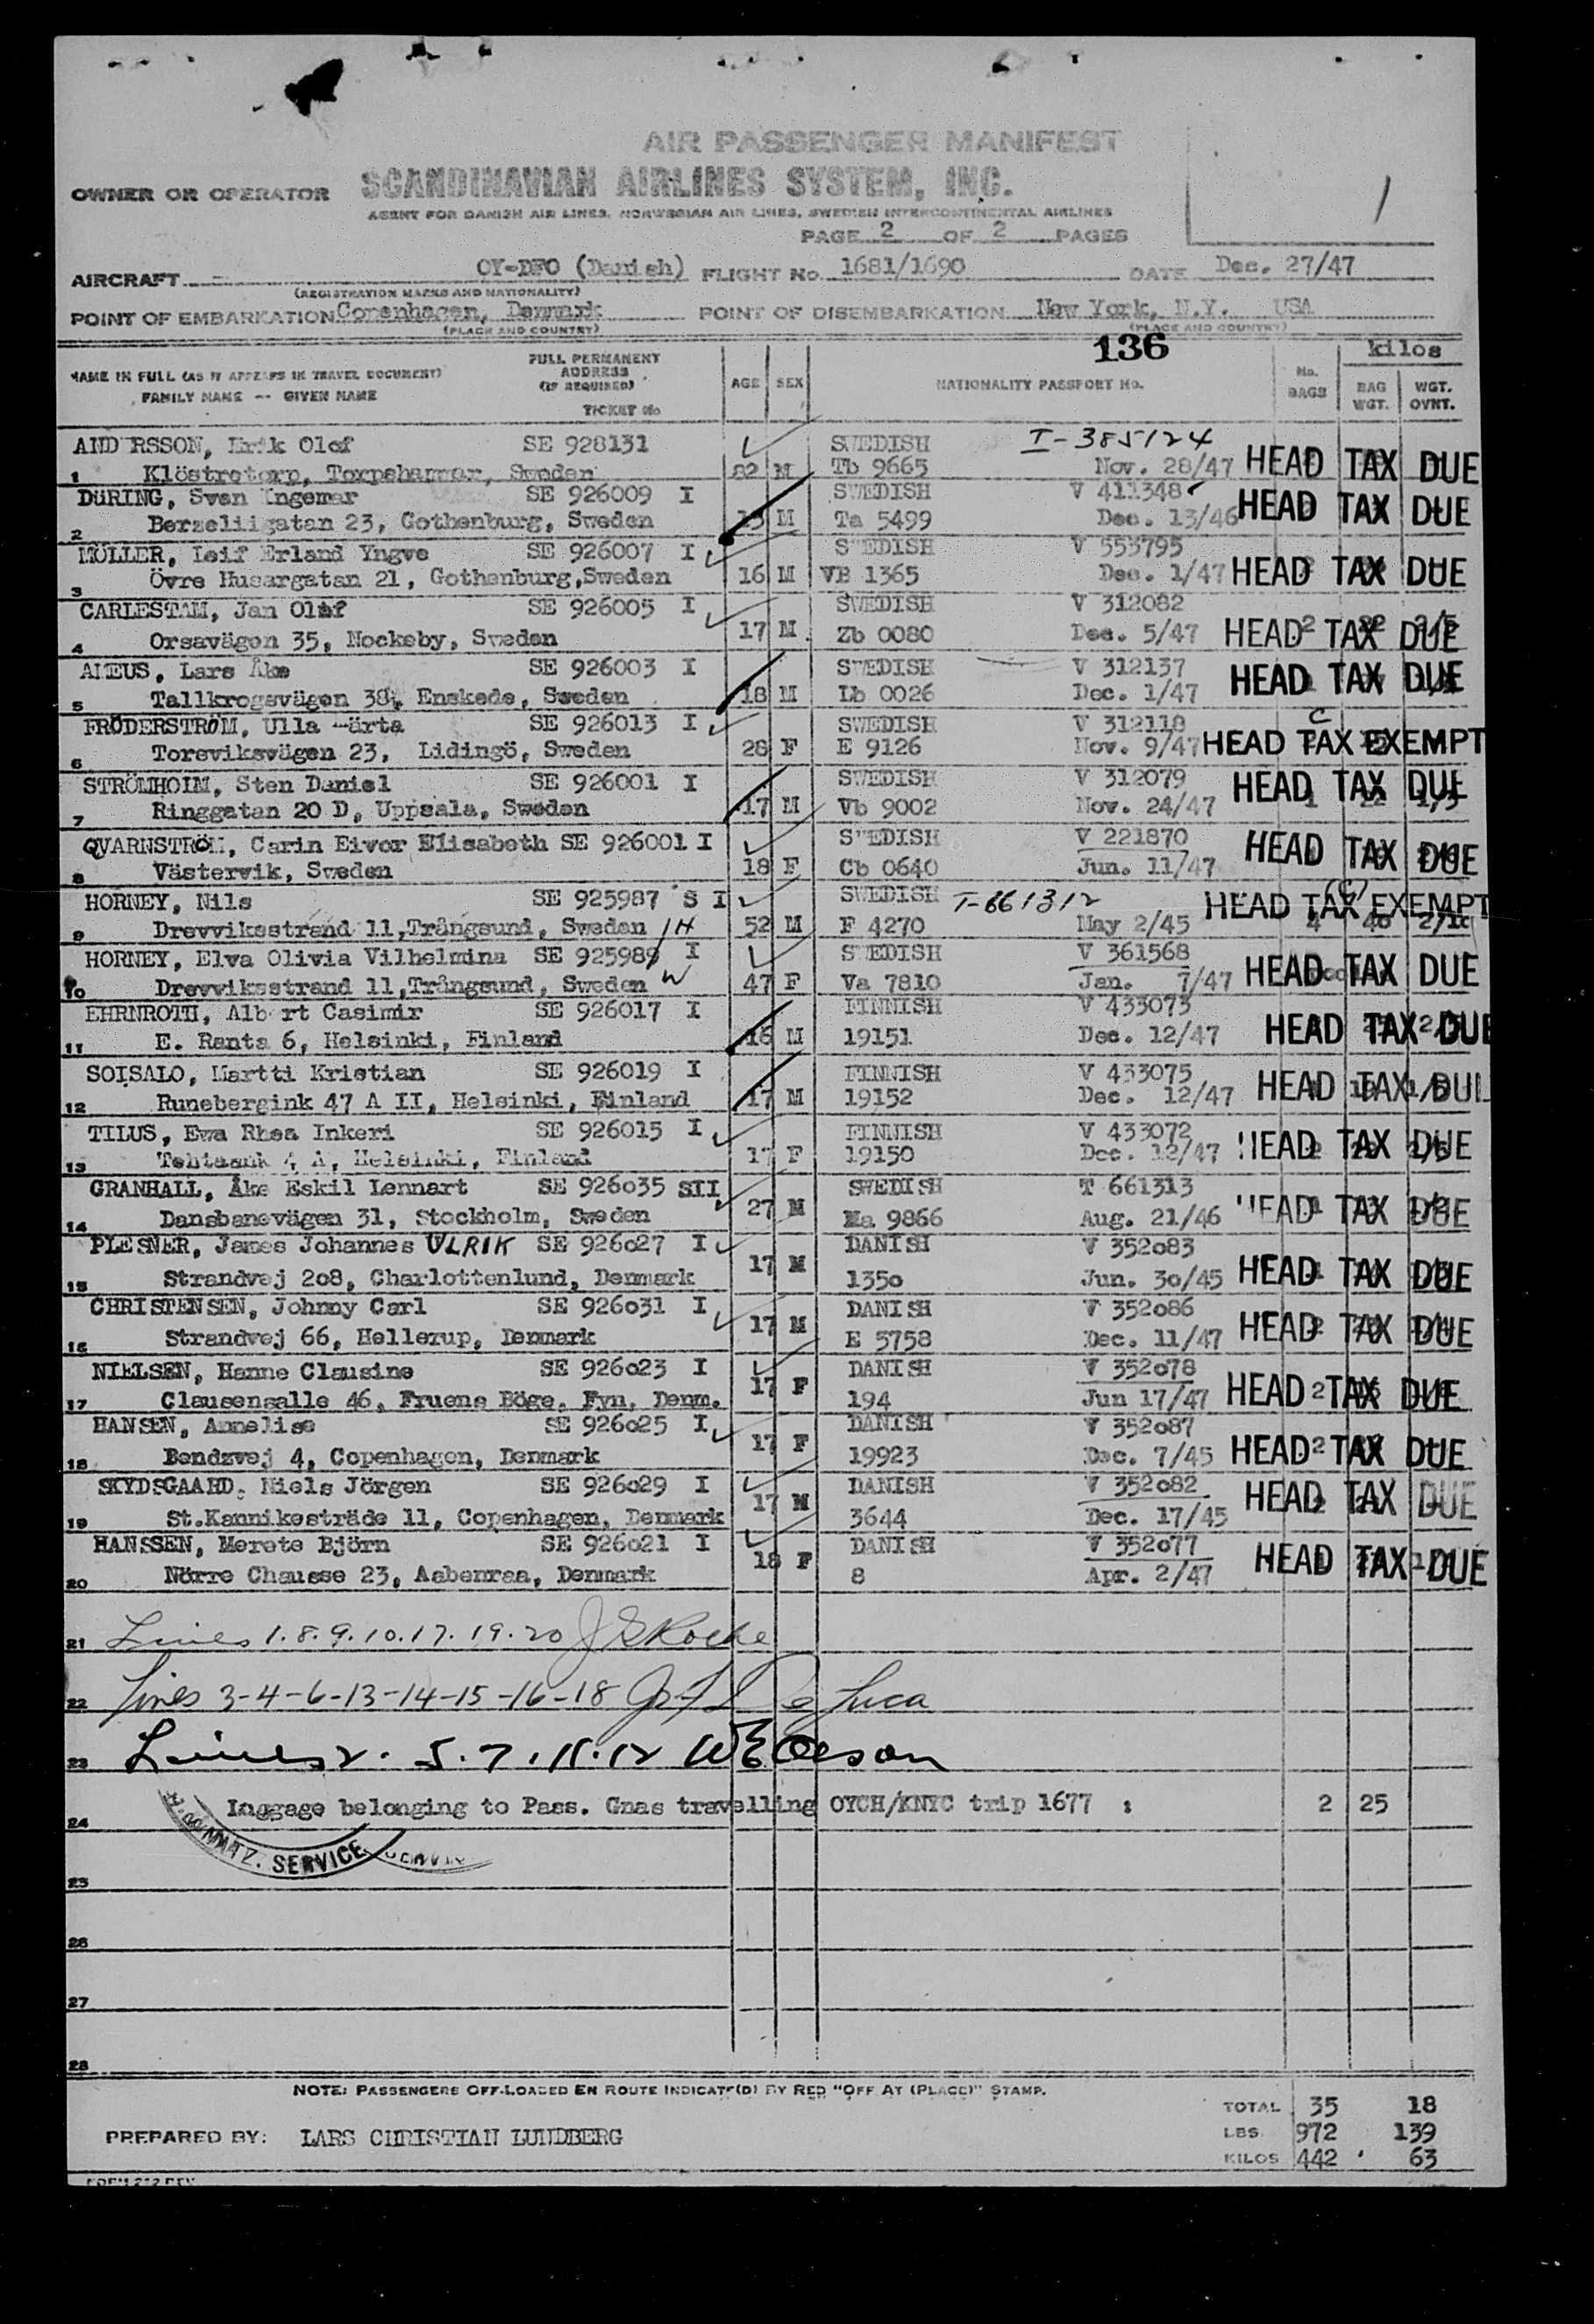 AIR PASSENGER MANIFEST
OWNER OR OPERATOR SCANDINAVIAN AIRLINES SYSTEM, INC.
AGENT FOR DANISH AIR LINES, NORWEGIAN AIR LINES, SWEDISH INTERCONTINENTAL AIRLINES
PAGE 2 OF 2 PAGES
AIRCRAFT OY-DFO (Danish) FLIGHT No. 1681/1690 DATE Dec. 27/47
(REGISTRATION MARKS AND NATIONALITY)
POINT OF EMBARKATION Copenhagen, Denmark POINT OF DISEMBARKATION New York, N.Y. USA
(PLACE AND COUNTRY) (PLACE AND COUNTRY)
136
kilos
NAME IN FULL (AS IT APPEARS IN TRAVEL DOCUMENT) FAMILY NAME -- GIVEN NAME
FULL PERMANENT ADDRESS (IF REQUIRED) TICKET No
AGE SEX NATIONALITY PASSPORT No. No. BAGS BAG WGT. WGT. OVNT.
AND RSSON, Erik Olof SE 928131 SWEDISH I-385124
1 Klöstretorp, Torpshammar, Sweden 82 M Tb 9665 Nov. 28/47 HEAD TAX DUE
DüRING, Sven Ingemar SE 926009 I SWEDISH V 411348
2 Berzeliigatan 23, Gothenburg, Sweden M Ta 5499 Dec. 13/46 HEAD TAX DUE
MÖLLER, Leif Erland Yngve SE 926007 I S EDISH V 553795
3 Övre Husargatan 21, Gothenburg, Sweden 16 M VB 1365 Dec. 1/47 HEAD TAX DUE
CARLESTAM, Jan Olaf SE 926005 I SWEDISH V 312082
4 Orsavägen 35, Nockeby, Sweden 17 M Zb 0080 Dec. 5/47 HEAD TAX DUE
Lars Åke SE 926003 I SWEDISH V 312137
5 Tallkrogsvägen 38, Enskede, Sweden 18 M Lb 0026 Dec. 1/47 HEAD TAX DUE
FRÖDERSTRÖM, Ulla Märta SE 926013 I SWEDISH V 312118 C
6 Toreviksvägen 23, Lidingö, Sweden 28 F E 9126 Nov. 9/47 HEAD TAX EXEMPT
STRÖMHOLM, Sten Daniel SE 926001 I SWEDISH V 312079
7 Ringgatan 20 D, Uppsala, Sweden 17 M Vb 9002 Nov. 24/47 HEAD TAX DUE
QVARNSTRÖM, Carin Eivor Elisabeth SE 926001 I S EDISH V 221870
8 Västervik, Sweden 18 F Cb 0640 Jun. 11/47 HEAD TAX DUE
HORNEY, Nils SE 925987 S I SWEDISH T-661312 (C)
9 Drevviksstrand 11, Trångsund, Sweden H 52 M F 4270 May 2/45 HEAD TAX EXEMPT
HORNEY, Elva Olivia Vilhelmina SE 925989 I S EDISH V 361568
10 Drevviksstrand 11, Trångsund, Sweden W 47 F Va 7810 Jan. 7/47 HEAD TAX DUE
EHRNROTH, Alb rt Casimir SE 926017 I FINNISH V 433073
11 E. Ranta 6, Helsinki, Finland 16 M 19151 Dec. 12/47 HEAD TAX DUE
SOISALO, Martti Kristian SE 926019 I FINNISH V 433075
12 Runebergink 47 A II, Helsinki, Finland 17 M 19152 Dec. 12/47 HEAD TAX DUE
TILUS, Ewa Rhea Inkeri SE 926015 I FINNISH V 433072
13 A, Helsinki, Finland 17 F 19150 Dec. 12/47 HEAD TAX DUE
GRANHALL, Åke Eskil Lennart SE 926035 SII SWEDISH T 661313
14 Dansbanevägen 31, Stockholm, Sweden 27 M Ma 9866 Aug. 21/46 HEAD TAX DUE
PLESNER, James Johannes ULRIK SE 926027 I DANISH V 352083
15 Strandvej 208, Charlottenlund, Denmark 17 M 1350 Jun. 30/45 HEAD TAX DUE
CHRISTENSEN, Johnny Carl SE 926031 I DANISH V 352086
16 Strandvej 66, Hellerup, Denmark 17 M E 5758 Dec. 11/47 HEAD TAX DUE
NIELSEN, Hanne Clausine SE 926023 I DANISH V 352078
17 Clausensalle 46, Fruens Böge, Fyn, Denm. 17 F 194 Jun 17/47 HEAD TAX DUE
HANSEN, Annelise SE 926025 I DANISH V 352087
18 Bendzvej 4, Copenhagen, Denmark 17 F 19923 Dec. 7/45 HEAD TAX DUE
SKYDSGAARD, Niels Jörgen SE 926029 I DANISH V 352082
19 St.Kannikesträde 11, Copenhagen, Denmark 17 M 3644 Dec. 17/45 HEAD TAX DUE
HANSSEN, Merete Björn SE 926021 I DANISH V 352077
20 Nörre Chausse 23, Aabenraa, Denmark 18 F 8 Apr. 2/47 HEAD TAX DUE
21 Lines 1.8.9.10.17.19.20 Roche
22 Lines 3-4-6-13-14-15-16-18 De Luca
23 Lines 2. 5.7.11.12 WE Oleson
24 Luggage belonging to Pass. Gnas travelling OYCH/KNYC trip 1677 : 2 25
SERVICE
25
26
27
28
NOTE: PASSENGERS OFF-LOADED EN ROUTE INDICATE(D) BY RED "OFF AT (PLACE)" STAMP.
TOTAL 35 18
PREPARED BY: LARS CHRISTIAN LUNDBERG LBS. 972 139
KILOS 442 63